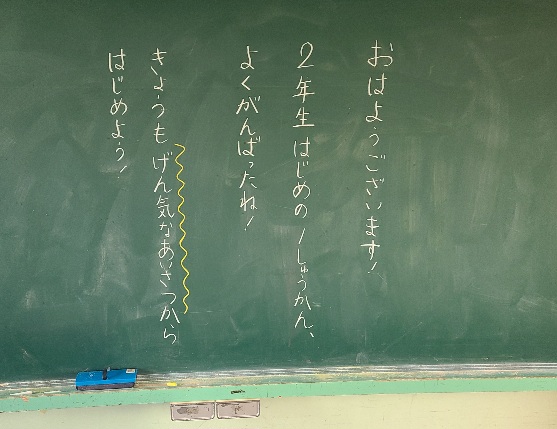 おはようございます!
2年生はじめの1しゅうかん、
よくがんばったね!
きょうもげん気なあいさつから
はじめよう!